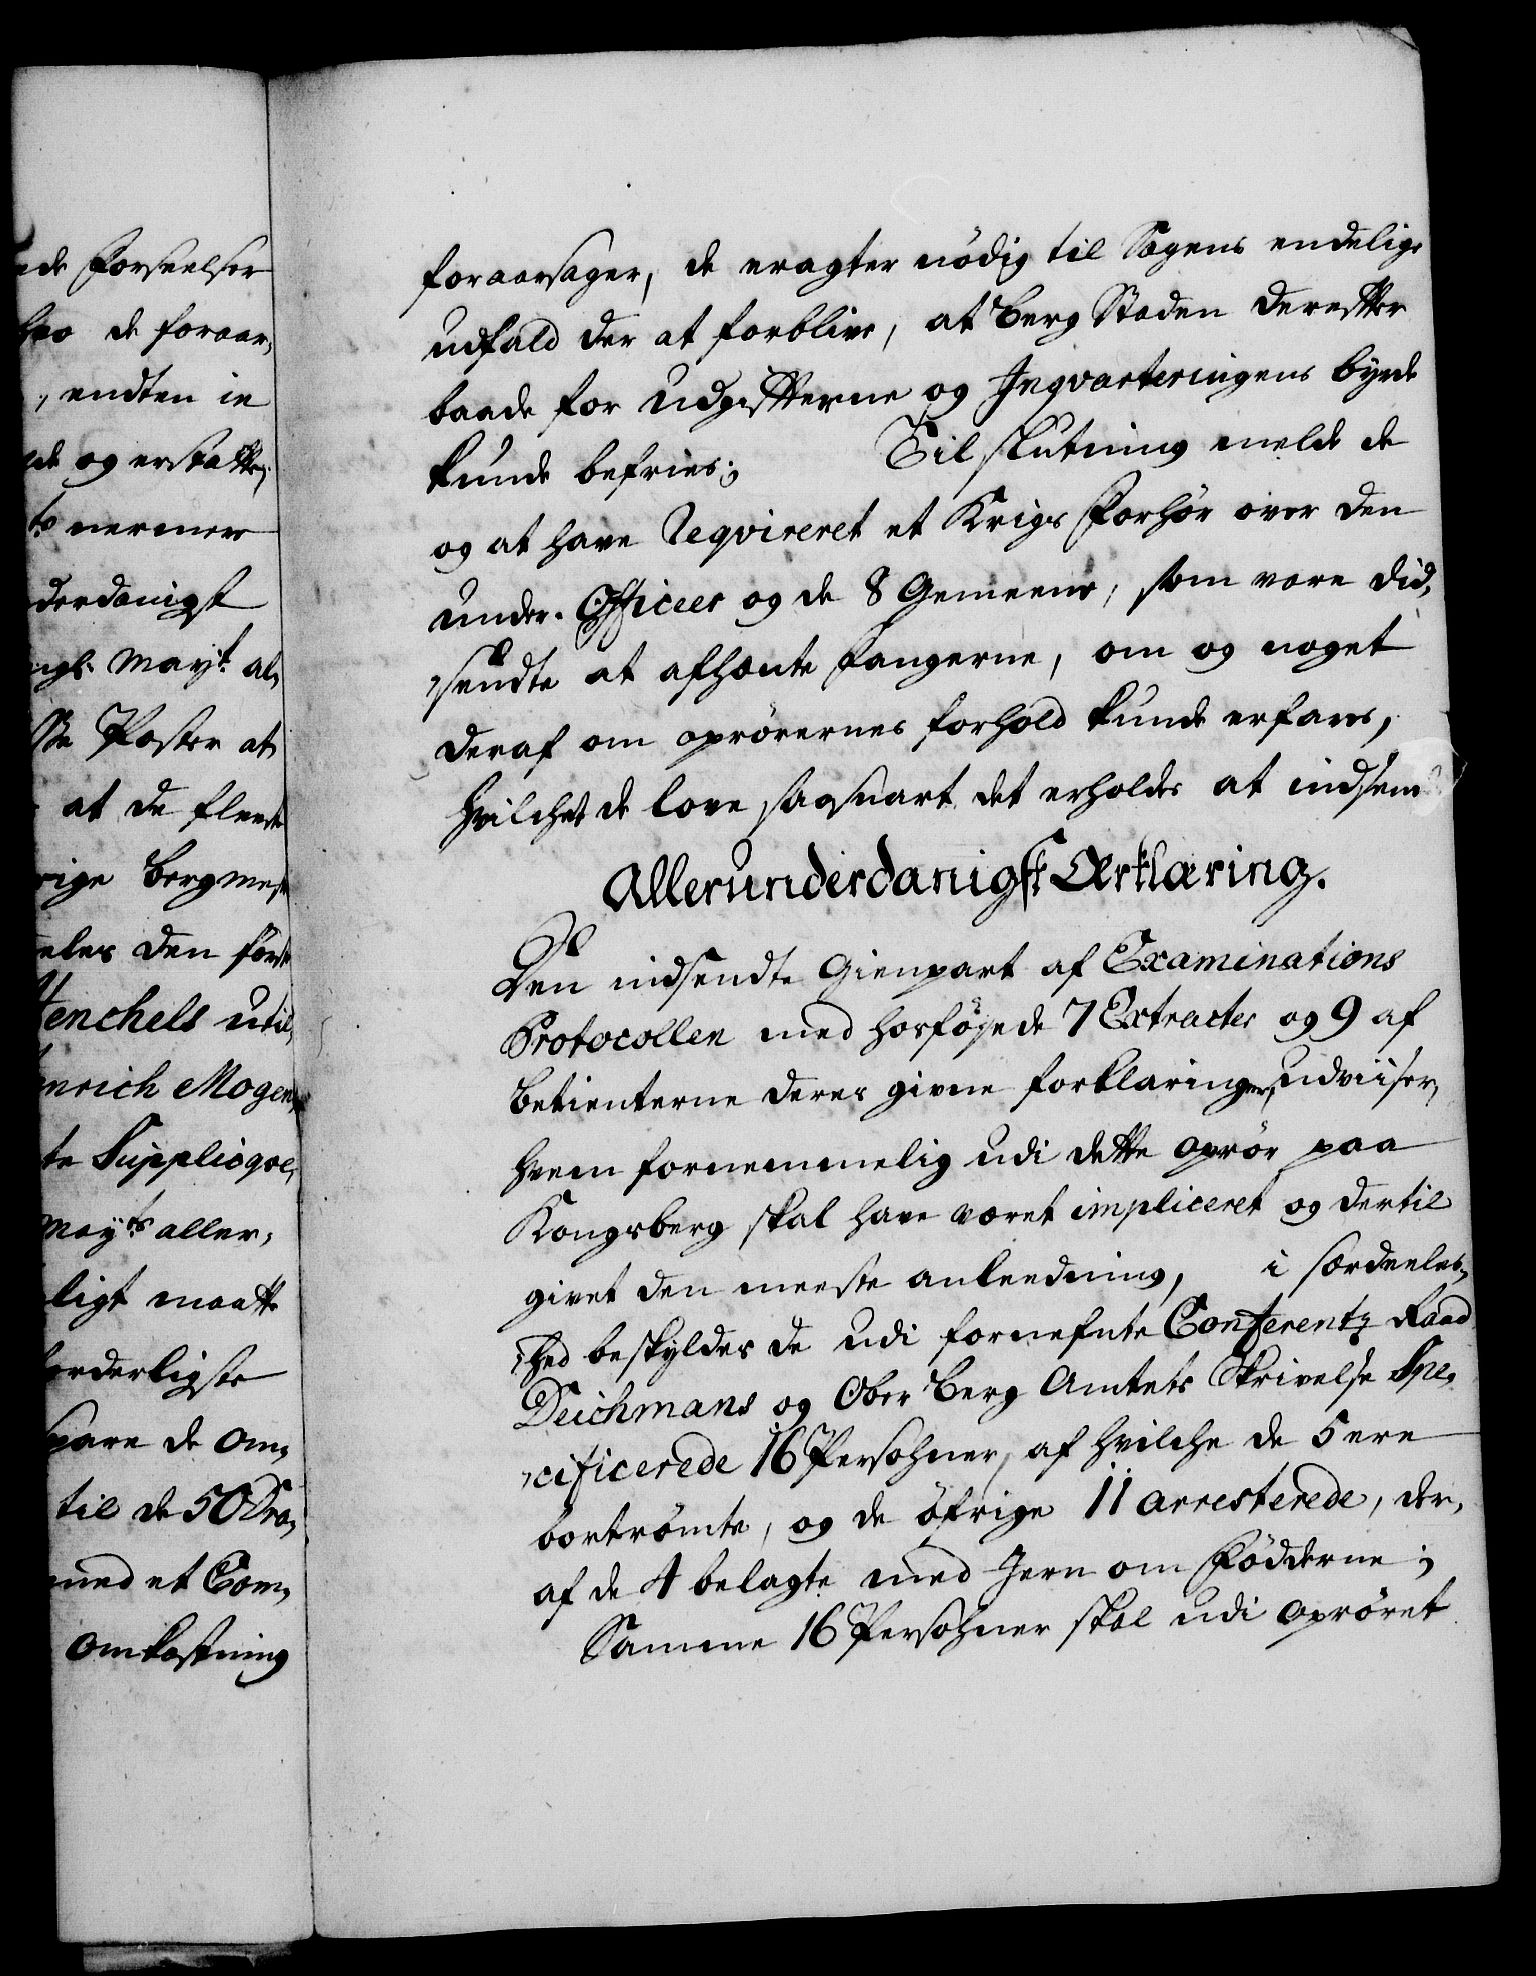 ede forseelser
hvo de foraar,
, endten in
de og erstatte,
ts nermere
derdanigst
ngl. Mayt. al,
Poster at
at de fleeste
rige bergmest
eles den første
Henchels udi,
nrich Mogens
te Suppliqve,
Mayts aller,
ligt maatte
orderligste
pare de om,
til de 50 Dra,
med et Com,
omkostning
foraarsager, de eragter nödig til Sagens endelige
udfald der at forblive, at Berg Staden derefter
baade for udgifterne og Inqvarteringens byrde
kunde befries; Til slutning melde de
og at have Reqvireret et Krigs Forhör over den
under. Officeer og de 8 Gemeene, som vare did,
,sendte at afhente fangerne, om og noget
deraf om oprörernes forhold kunde erfares,
hvilchet de love, saasnart det erholdes at indsen
Allerunderdanigst Erklæring.
Den indsendte Gienpart af Examinations
Protocollen med hosföyede 7 Extracter og 9 af
betienterne deres givne forklaringer, udviiser,
hvem fornemmelig udi dette oprör paa
Kongsberg skal have været impliceret og dertil
givet den meeste anleedning, i særdeeles,
,hed beskyldes de udi fornefnte Conferentz Raad
Deichmans og Ober Berg Amtets Skrivelse Spe,
,cificerede 16 Persohner, af hvilche de 5 ere
bortrömte, og de öfrige 11 arresterede, der,
af de 4 belagte med Jern om Födderne;
Samme 16 Persohner skal udi opröret